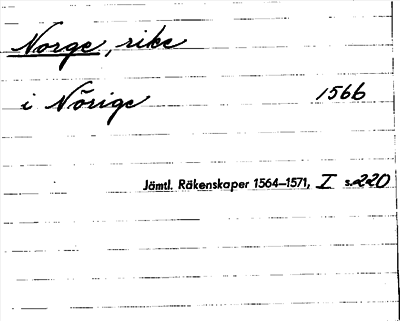 Norge, rike
i Nörige 1566
Jämtl. Räkenskaper 1564–1571, I s.220